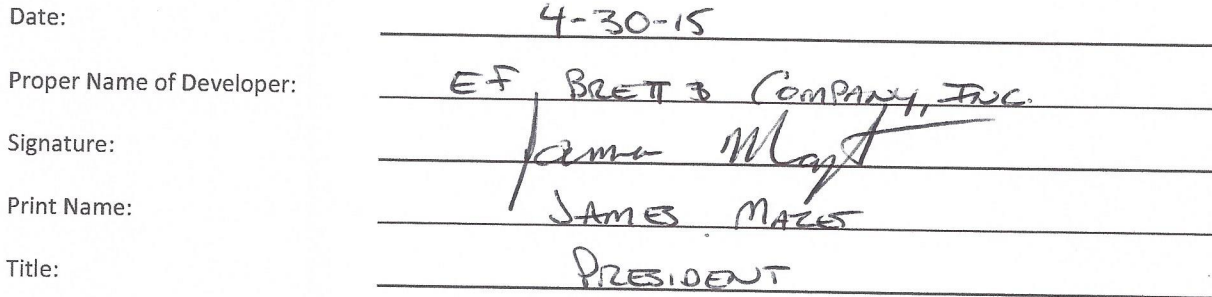 Date: 4-30-15
Proper Name of Developer: EF BRETT & COMPANY, INC.
Signature:
Print Name: JAMES MAZET
Title: PRESIDENT